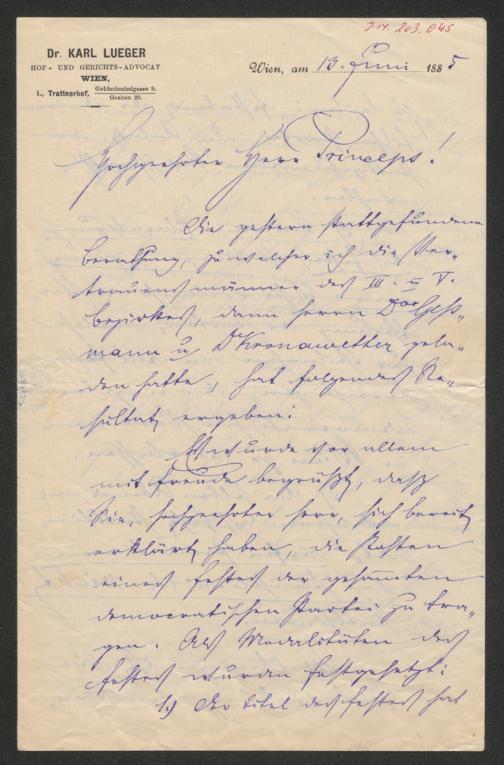 J.N. 203.045
Dr. KARL LUEGER
HOF- UND GERICHTS-ADVOCAT
WIEN,
I., Trattnerhof, Goldschmiedgasse 9.
Graben 29.
Wien, am 13. Juni 1885
Hochgeehrter Herr Princeps!
Die gestern stattgefundene
Berathung, zu welcher ich die Ver-
trauensmänner des III. u V.
Bezirkes, dann Herrn Dor Geß-
mann u Dr Kronawetter gela-
den hatte, hat folgendes Re-
sultat ergeben:
Es wurde vor allem
mit Freude begrüßt, daß
Sie, hochgeehrter Herr, sich bereit
erklärt haben, die Kosten
eines Festes der gesamten
democratischen Partei zu tra-
gen. Als Modalitäten des
Festes wurden festgesetzt:
1.) Der Titel des Festes hat